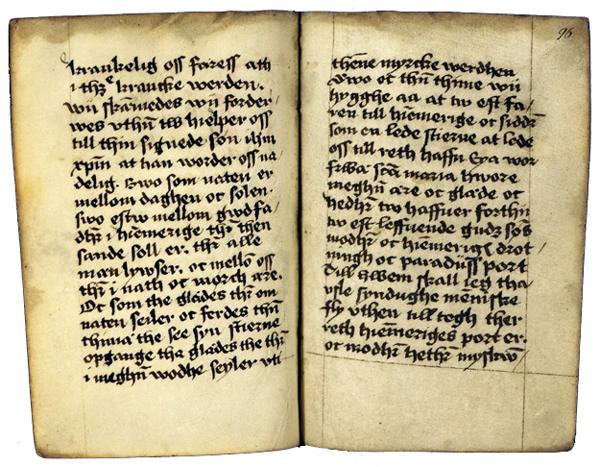 krankelig oss faress ath
i thꝫe krancke werden.
wii skämedes wii forder
wes vthn̄ tw hielper oss
till thin signede son ihm̄
xpm̄ at han worder oss na
delig. Swo som naten er
mellom daghen oc solen.
swo estw mellom gwd fa/
dhr̄ i hiemerige thr̄ then
sande soll er. thr̄ alle
man lywser. oc mellō oss
thr̄ i nath oc morch ære.
Oc som the glades thr̄ om
naten seiler oc ferdes thn̄
timia the see syn stierne
opgange tha glades the thr̄
i meghn̄ wodhe seyler vti
96
thēne myrcke werdhen
Swo oc thn̄ thime wii
hygghe aa at tw est fa/
ren till hiēmerige oc siddr̄
som en lede stierne at lede
oss till reth haffn Eya wor
frwa scā maria hwore
meghn̄ ære oc glæde oc
hedhr̄ tw haffuer forthn̄
tw est leffuende gudz søns
modhr̄ oc hiemerigꝭ drot/
ningh oc paradiiss port
Till hwem skall ieg tha/
vsle syndughe meniske
fly vthen till tegh ther
reth hiēmeriges port er.
oc modhr̄ hethr̄ myskw̄/